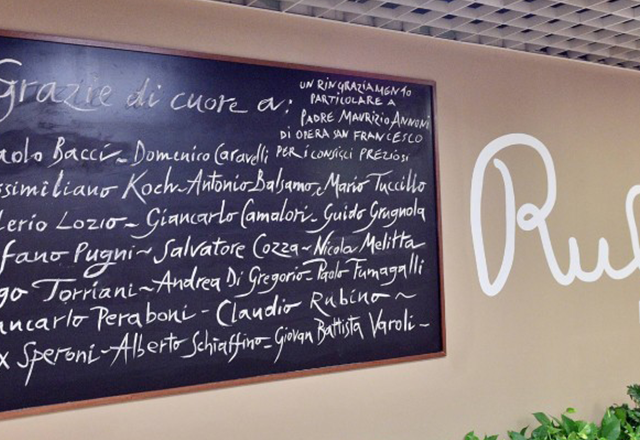 Grazie di cuore a:
UN RINGRAZIAMENTO
PARTICOLARE A
PADRE MAURIZIO ANNONI
DI OPERA SAN FRANCESCO
PER I CONSIGLI PREZIOSI
aolo Bacci ~ Domenico Caravelli
ssimiliano Koch ~ Antonio Balsamo ~ Mario Tuccillo
lerio Lozio ~ Giancarlo Camalori ~ Guido Grugnola
fano Pugni ~ Salvatore Cozza ~ Nicola Melitta
go Torriani ~ Andrea Di Gregorio ~ Paolo Fumagalli
ancarlo Peraboni - Claudio Rubino ~
x Speroni - Alberto Schiaffino - Giovan Battista Varoli -
Ru